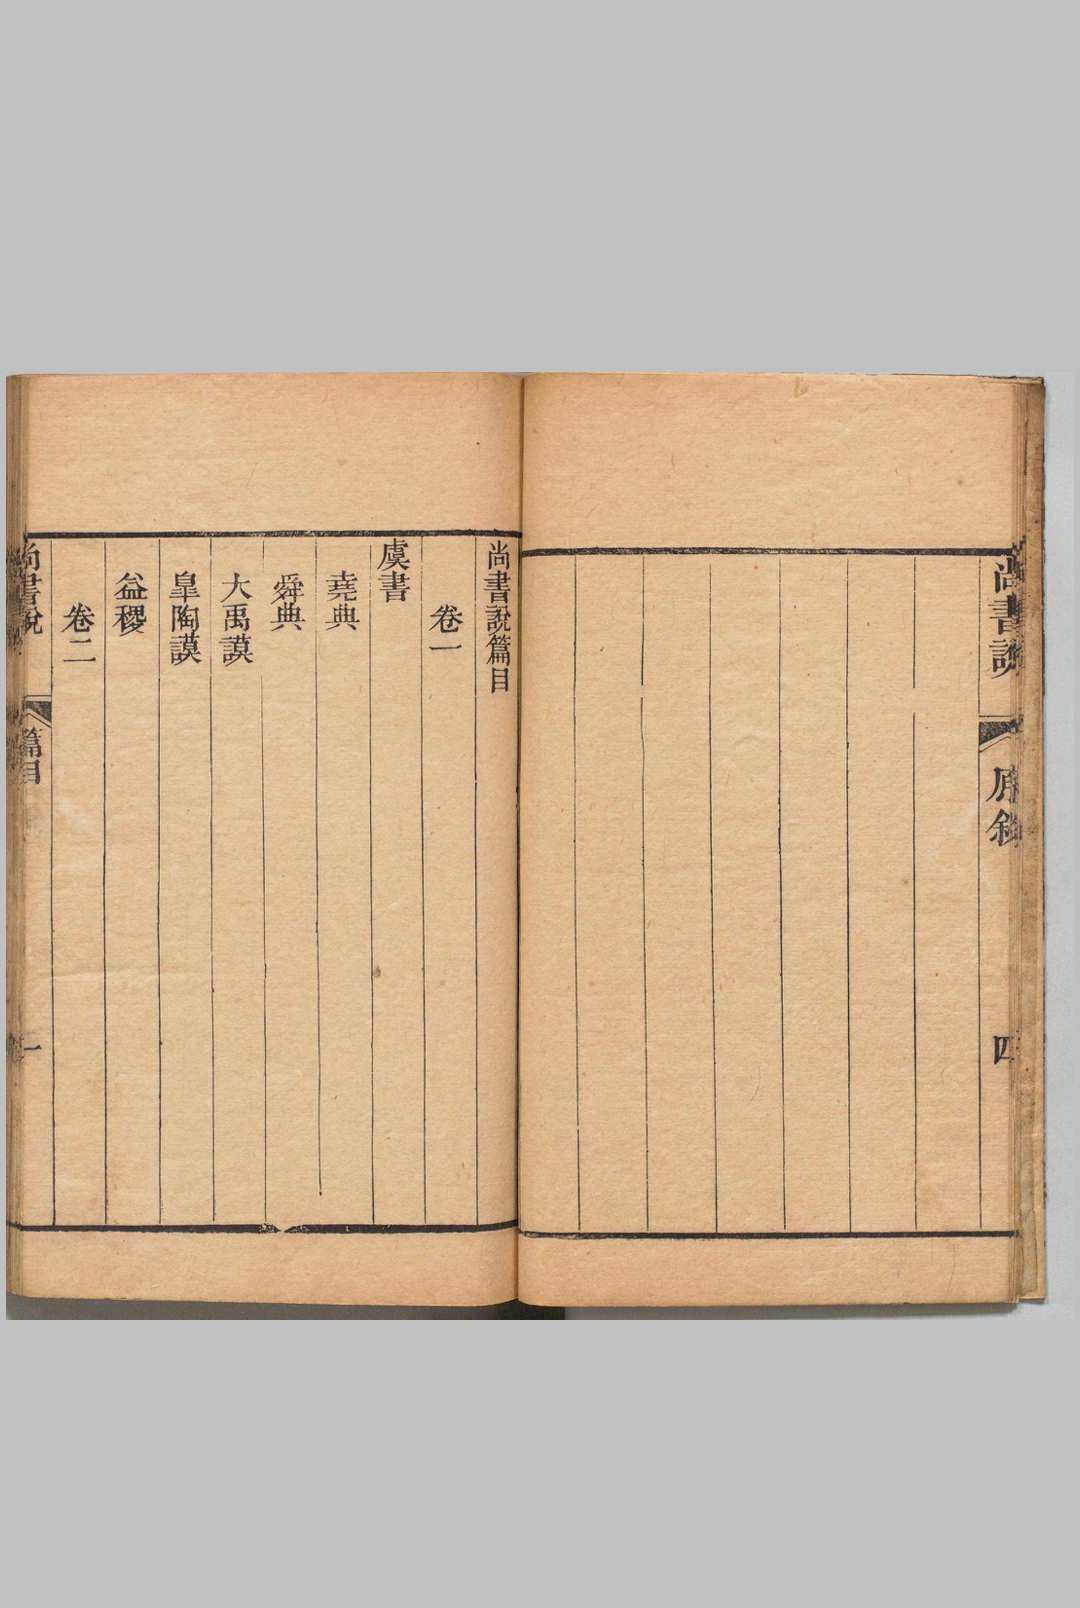 尚書說
序錄
四
尚書說篇目
卷一
虞書
堯典
舜典
大禹謨
皐陶謨
益稷
卷二
尚書說
篇目
一